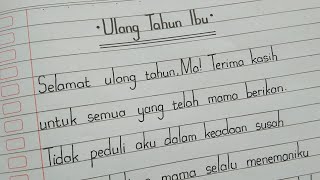 • Ulang Tahun Ibu •
Selamat ulang tahun, Ma! Terima kasih
untuk semua yang telah mama berikan.
Tidak peduli aku dalam keadaan susah
mama selalu menemaniku